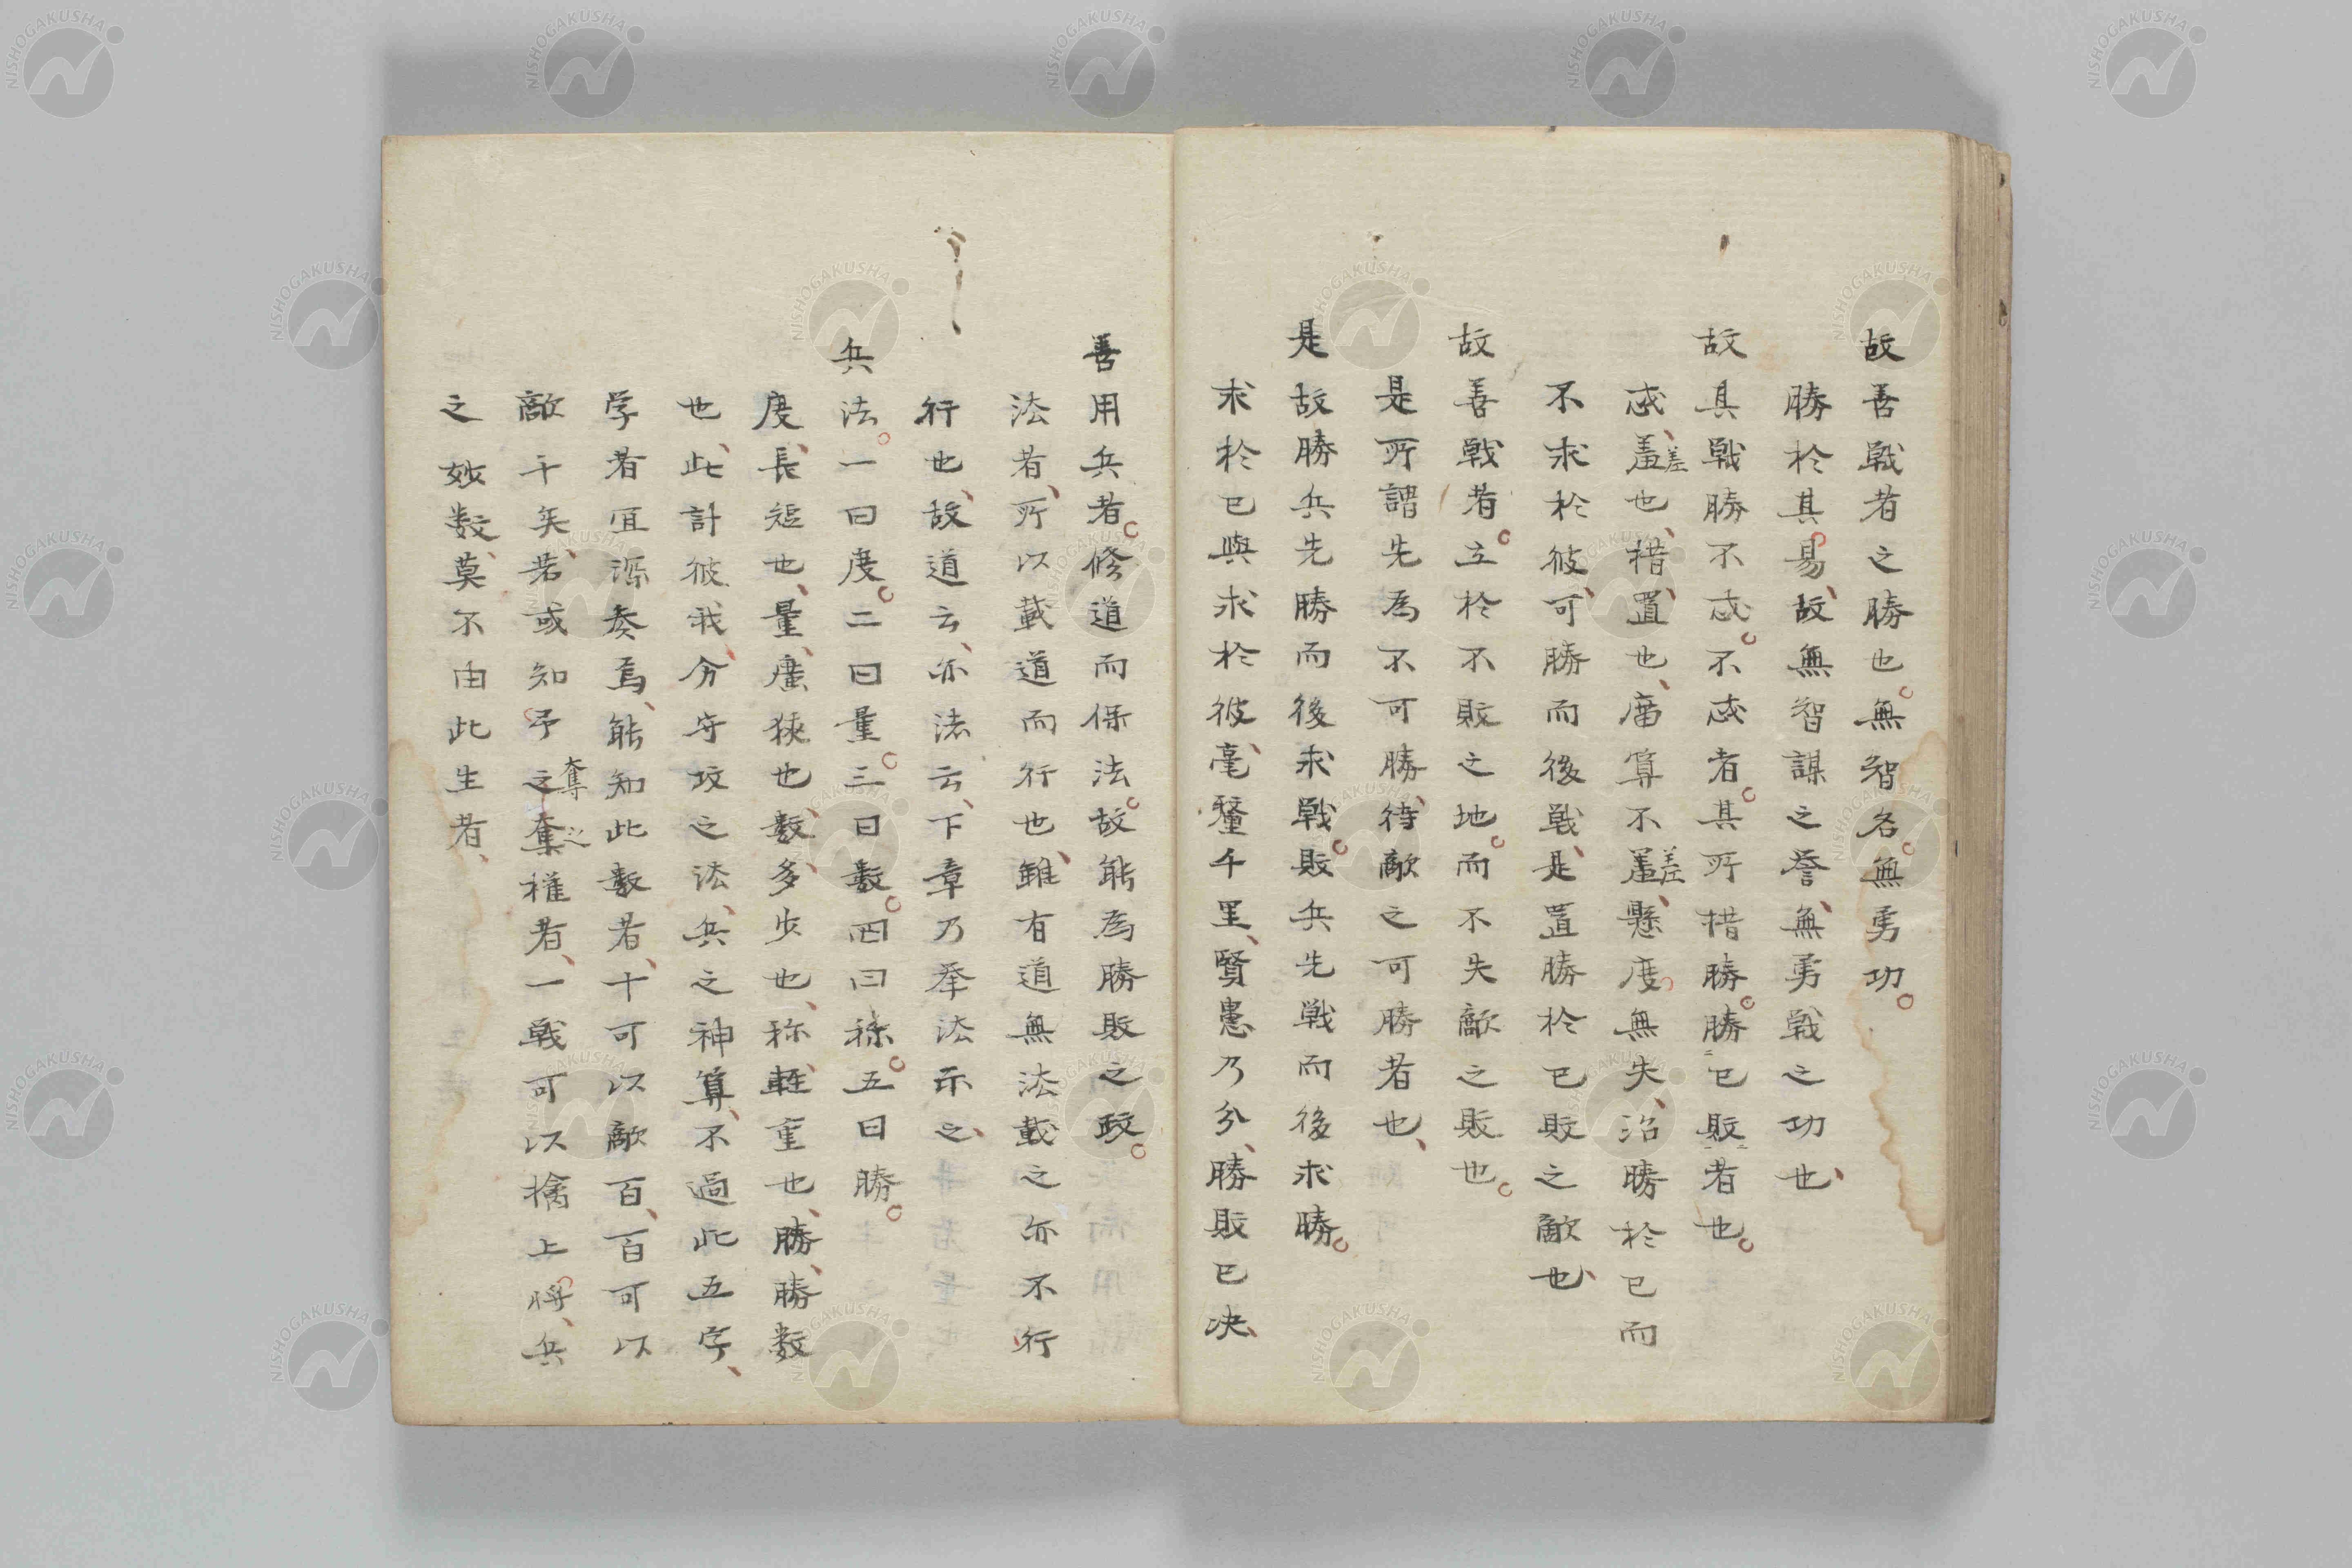 故善戰者之勝也無智名無勇功
勝於其易故無智謀之誉無勇戰之功也
故其戰勝不忒不忒者其所措勝勝已敗者也
忒羞差也措置也庿算不羞差懸度無失治勝於已而
不求於彼可勝而後戰是置勝於已敗之敵也
故善戰者立於不敗之地而不失敵之敗也
是所謂先為不可勝待敵之可勝者也
是故勝兵先勝而後求戰敗兵先戰而後求勝
求於已與求於彼毫釐千里賢愚乃分勝敗已决
善用兵者修道而保法故能為勝敗之政
法者所以載道而行也雖有道無法載之亦不行
行也故道云亦法云下章乃挙法示之
兵法一曰度二曰量三曰数四曰称五曰勝
度長短也量廣狹也数多少也称軽重也勝勝数
也此計彼我分守攻之法兵之神算不過此五字
学者宜深奏焉能知此数者十可以敵百百可以
敵千矣若或知予之奪奪之権者一戰可以擒上將兵
之妙数莫不由此生者
NISHOGAKUSHA